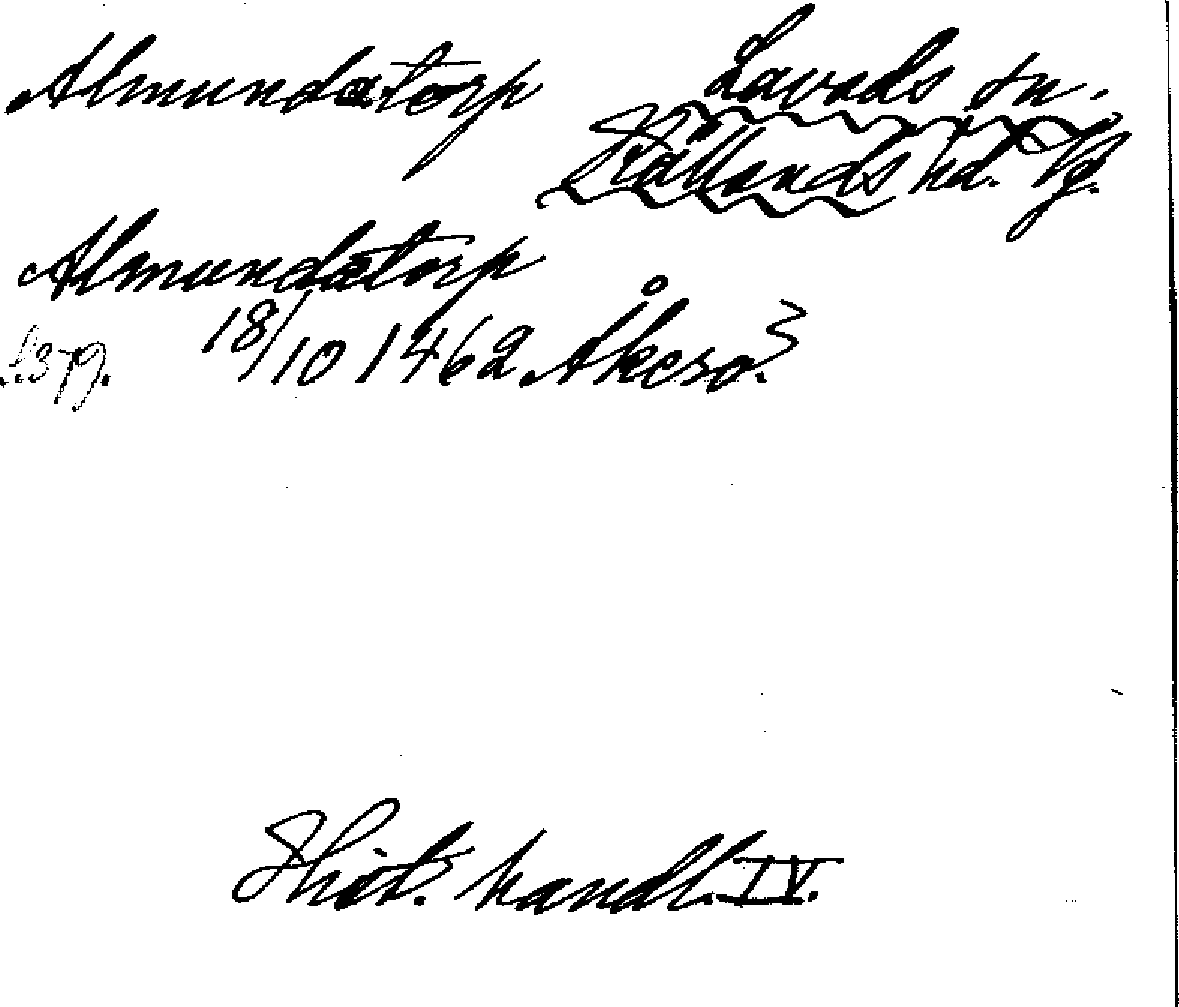 Almundatorp Lavads sn.
Kållands hd. Vg.
Almundatorp
s.379. 18/10 1462 Åkerö.
Hist. handl. IV.